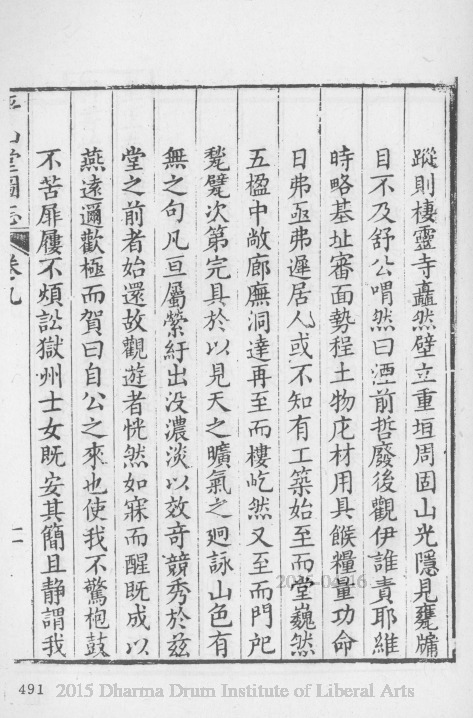 蹤則棲靈寺矗然壁立重垣周固山光隱見甕牖
目不及舒公喟然曰湮前哲廢後觀伊誰責耶維
時略基址審面勢程土物庀材用具餱糧量功命
日弗亟弗遲居人或不知有工築始至而堂巍然
五楹中敞廊廡洞達再至而樓屹然又至而門戺
甃甓次第完具於以見天之曠氣之迥詠山色有
無之句凡亘屬縈紆出没濃淡以效奇競秀於茲
堂之前者始還故觀遊者恍然如寐而醒既成以
燕遠邇歡極而賀曰自公之來也使我不驚枹鼓
不苦屝屨不煩訟獄州士女既安其簡且静謂我
平山堂圖志 卷九 二
2015-04-16
491 2015 Dharma Drum Institute of Liberal Arts